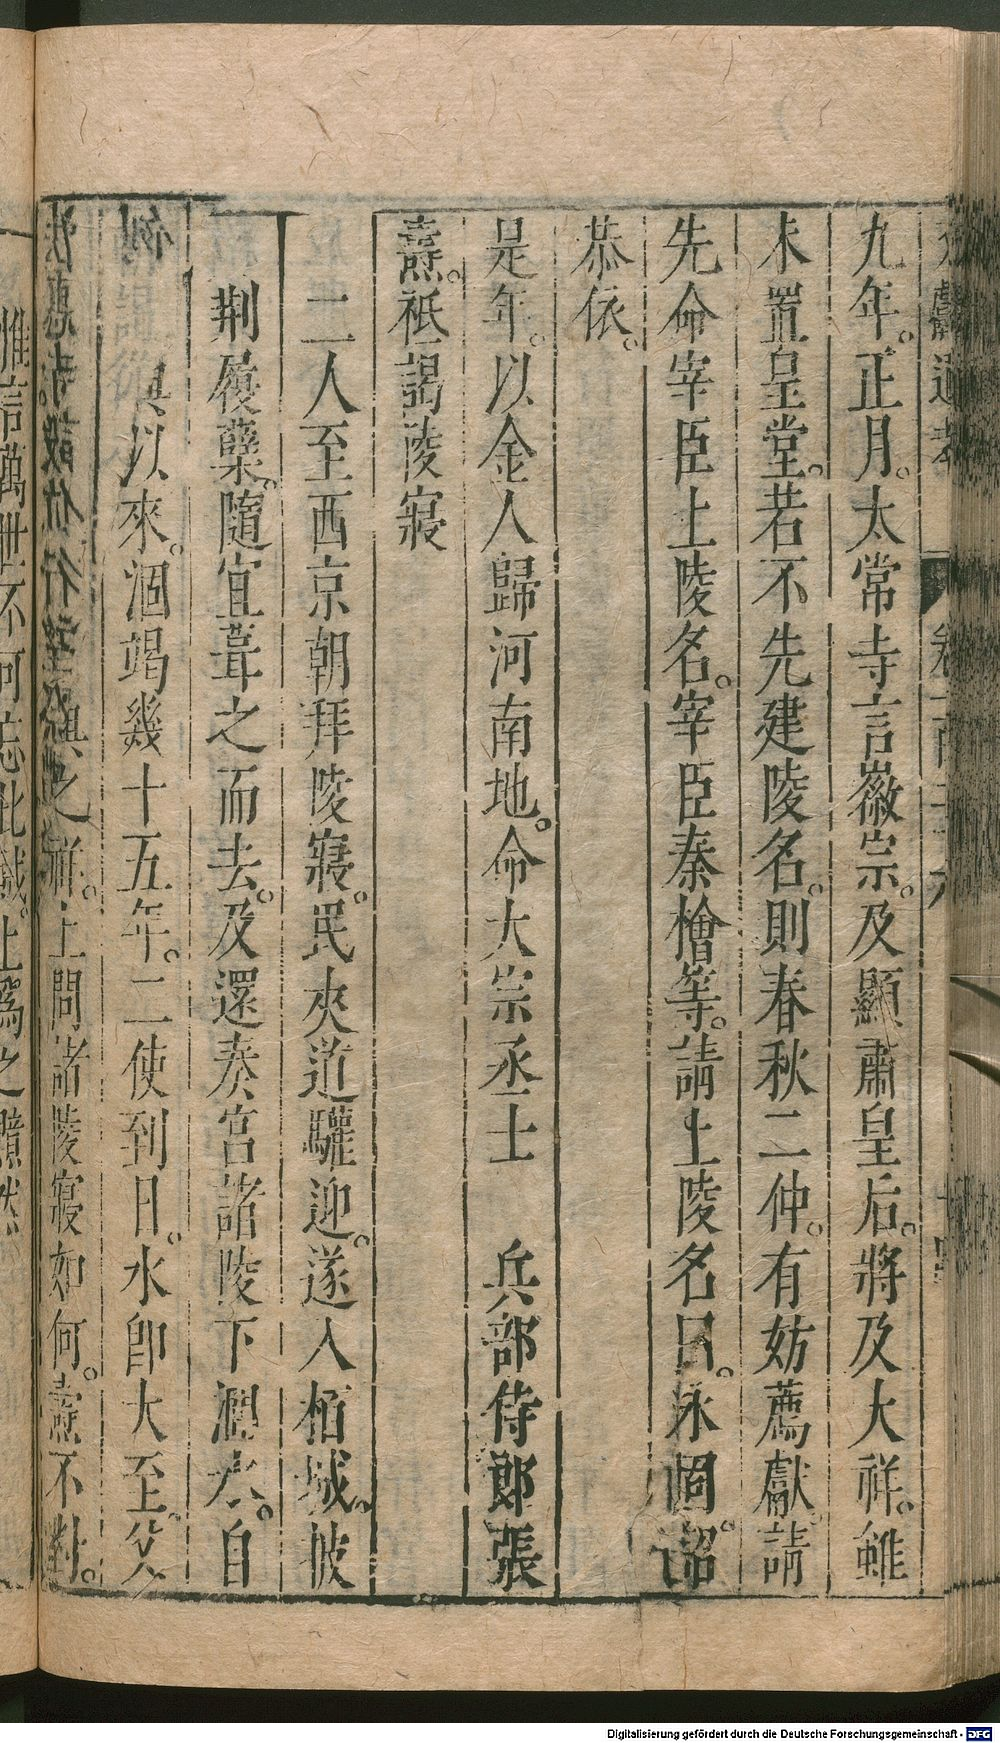 九年。正月。太常寺言徽宗。及顯肅皇后。將及大祥。雖
未置皇堂。若不先建陵名。則春秋二仲。有妨薦獻請
先命宰臣上陵名。宰臣秦檜等。請上陵名曰。永固。詔
恭依。
是年。以金人歸河南地。命大宗丞士 兵部侍郎張
燾。祗謁陵寢
二人至西京朝拜陵寢。民夾道驩迎。遂入栢城。披
荆履蘖。隨宜葺之而去。及還奏宮諸陵下澗水。自
以來。涸竭幾十五年。二使到日。水卽大至。父
興之祥。上問諸陵寢如何。燾不對。
惟言萬世不可忘此賊。上爲之黯然
Digitalisierung gefördert durch die Deutsche Forschungsgemeinschaft - DFG